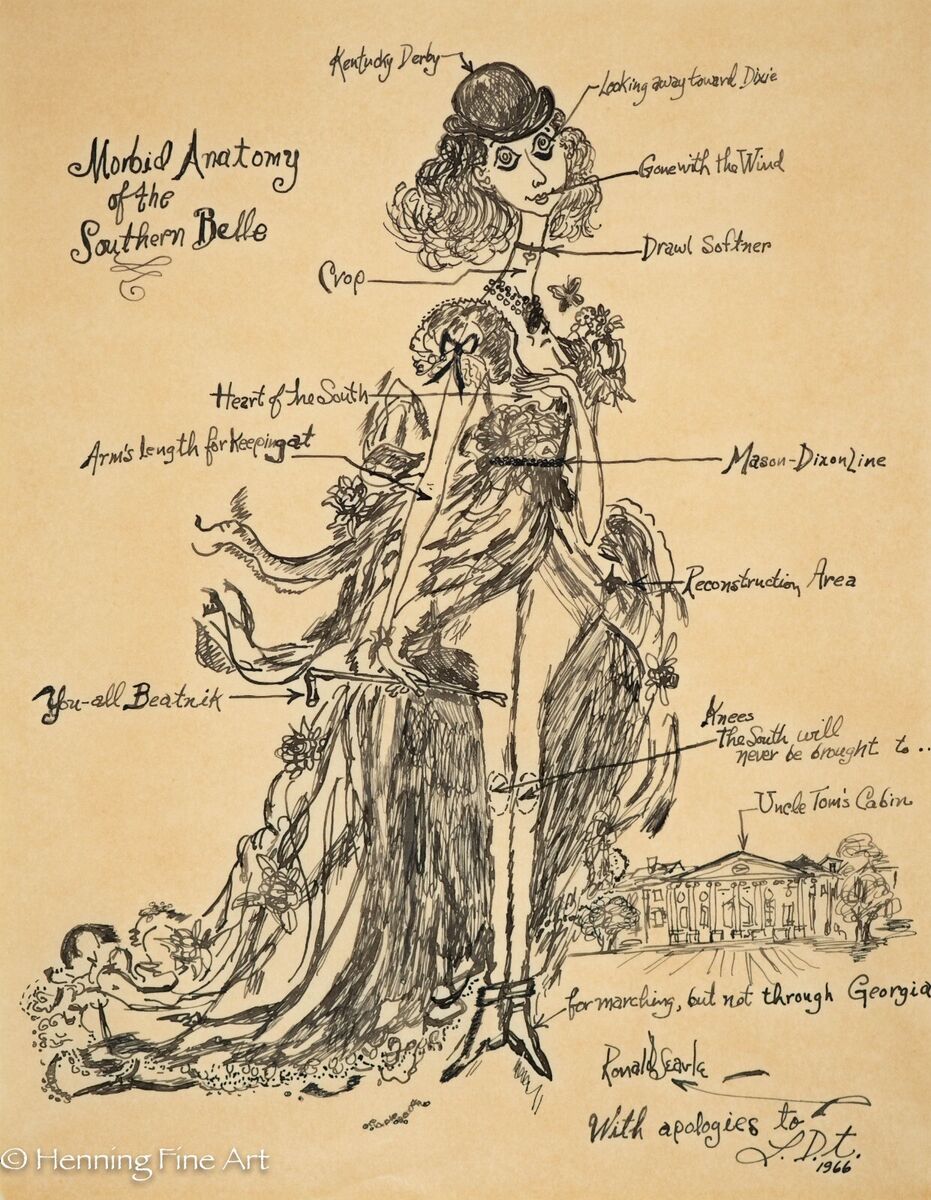 Kentucky Derby
Looking away toward Dixie
Morbid Anatomy
of the
Southern Belle
Gone with the Wind
Drawl Softner
Crop
Heart of the South
Arm's length for keeping at
Mason-Dixon Line
Reconstruction Area
You-all Beatnik
Knees
the South will
never be brought to..
Uncle Tom's Cabin
for marching, but not through Georgia
Ronald Searle
With apologies to
L.D.t.
1966
© Henning Fine Art